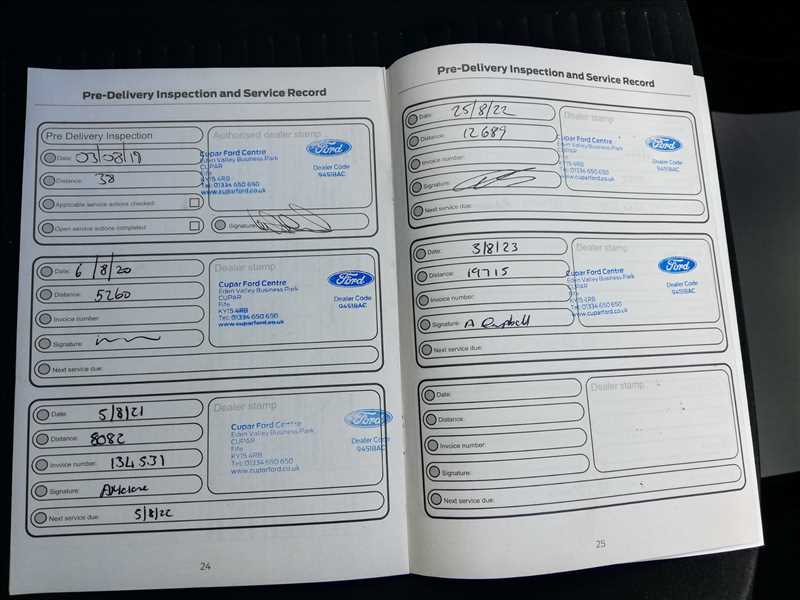 Pre-Delivery Inspection and Service Record
Pre Delivery Inspection
Date: 03/08/19
Distance: 38
Applicable service actions checked:
Open service actions completed
Authorised dealer stamp
Cupar Ford Centre
Eden Valley Business Park
CUPAR
Fife
KY15 4RB
Tel: 01334 650 650
www.cuparford.co.uk
Ford
Dealer Code
94518AC
Signature:
Date: 6/8/20
Distance: 5260
Invoice number:
Signature:
Next service due:
Dealer stamp
Cupar Ford Centre
Eden Valley Business Park
CUPAR
Fife
KY15 4RB
Tel: 01334 650 650
www.cuparford.co.uk
Ford
Dealer Code
94518AC
Date: 5/8/21
Distance: 8082
Invoice number: 134531
Signature:
Next service due: 5/8/22
Dealer stamp
Cupar Ford Centre
Eden Valley Business Park
CUPAR
Fife
KY15 4RB
Tel: 01334 650 650
www.cuparford.co.uk
Ford
Dealer Code
94518AC
24
Pre-Delivery Inspection and Service Record
Date: 25/8/22
Distance: 12689
Invoice number:
Signature:
Next service due:
Dealer stamp
Cupar Ford Centre
Eden Valley Business Park
CUPAR
Fife
KY15 4RB
Tel: 01334 650 650
www.cuparford.co.uk
Ford
Dealer Code
94518AC
Date: 3/8/23
Distance: 19715
Invoice number:
Signature: A
Next service due:
Dealer stamp
Cupar Ford Centre
Eden Valley Business Park
CUPAR
Fife
KY15 4RB
Tel: 01334 650 650
www.cuparford.co.uk
Ford
Dealer Code
94518AC
Date:
Distance:
Invoice number:
Signature:
Next service due:
Dealer stamp
25